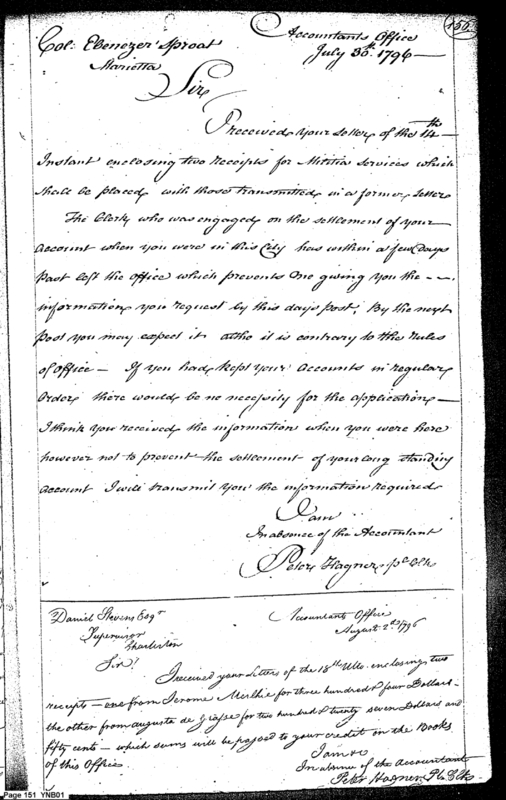 150.
Accountants Office
July 30th. 1796
Col: Ebenezer Sproat
Marietta
Sir
I received your Letter of the 14th
Instant enclosing two receipts for Militia services which
shall be placed with those transmitted in a former Letter
The Clerk who was engaged on the settlement of your
account when you were in this City has within a few Days
past left the office which prevents One giving you the - -
information you request by this days post, By the next
post you may expect it altho it is contrary to the rules
of office — If you had kept your Accounts in regular
Order, there would be no necessity for the application —
I think you received the information when you were here
however not to prevent the settlement of your long standing
account I will transmit you the information required
I am
In absence of the Accountant
Peter Hagner, pl Clk
Daniel Stevens Esqr
Supervisor
Charleston
Accountants Office
August 2d. 1796
Sir!
I received your Letters of the 18th Ulto. enclosing two
receipts — one from Jerome for three hundred & four Dollars -
the other from Augusta de Grasse for two hundred & twenty seven Dollars and
fifty cents — which sums will be passed to your credit on the Books
of this Office.
I am &c
In absence of the Accountant
Peter Hagner, Pl Clk
Page 151 YNB01